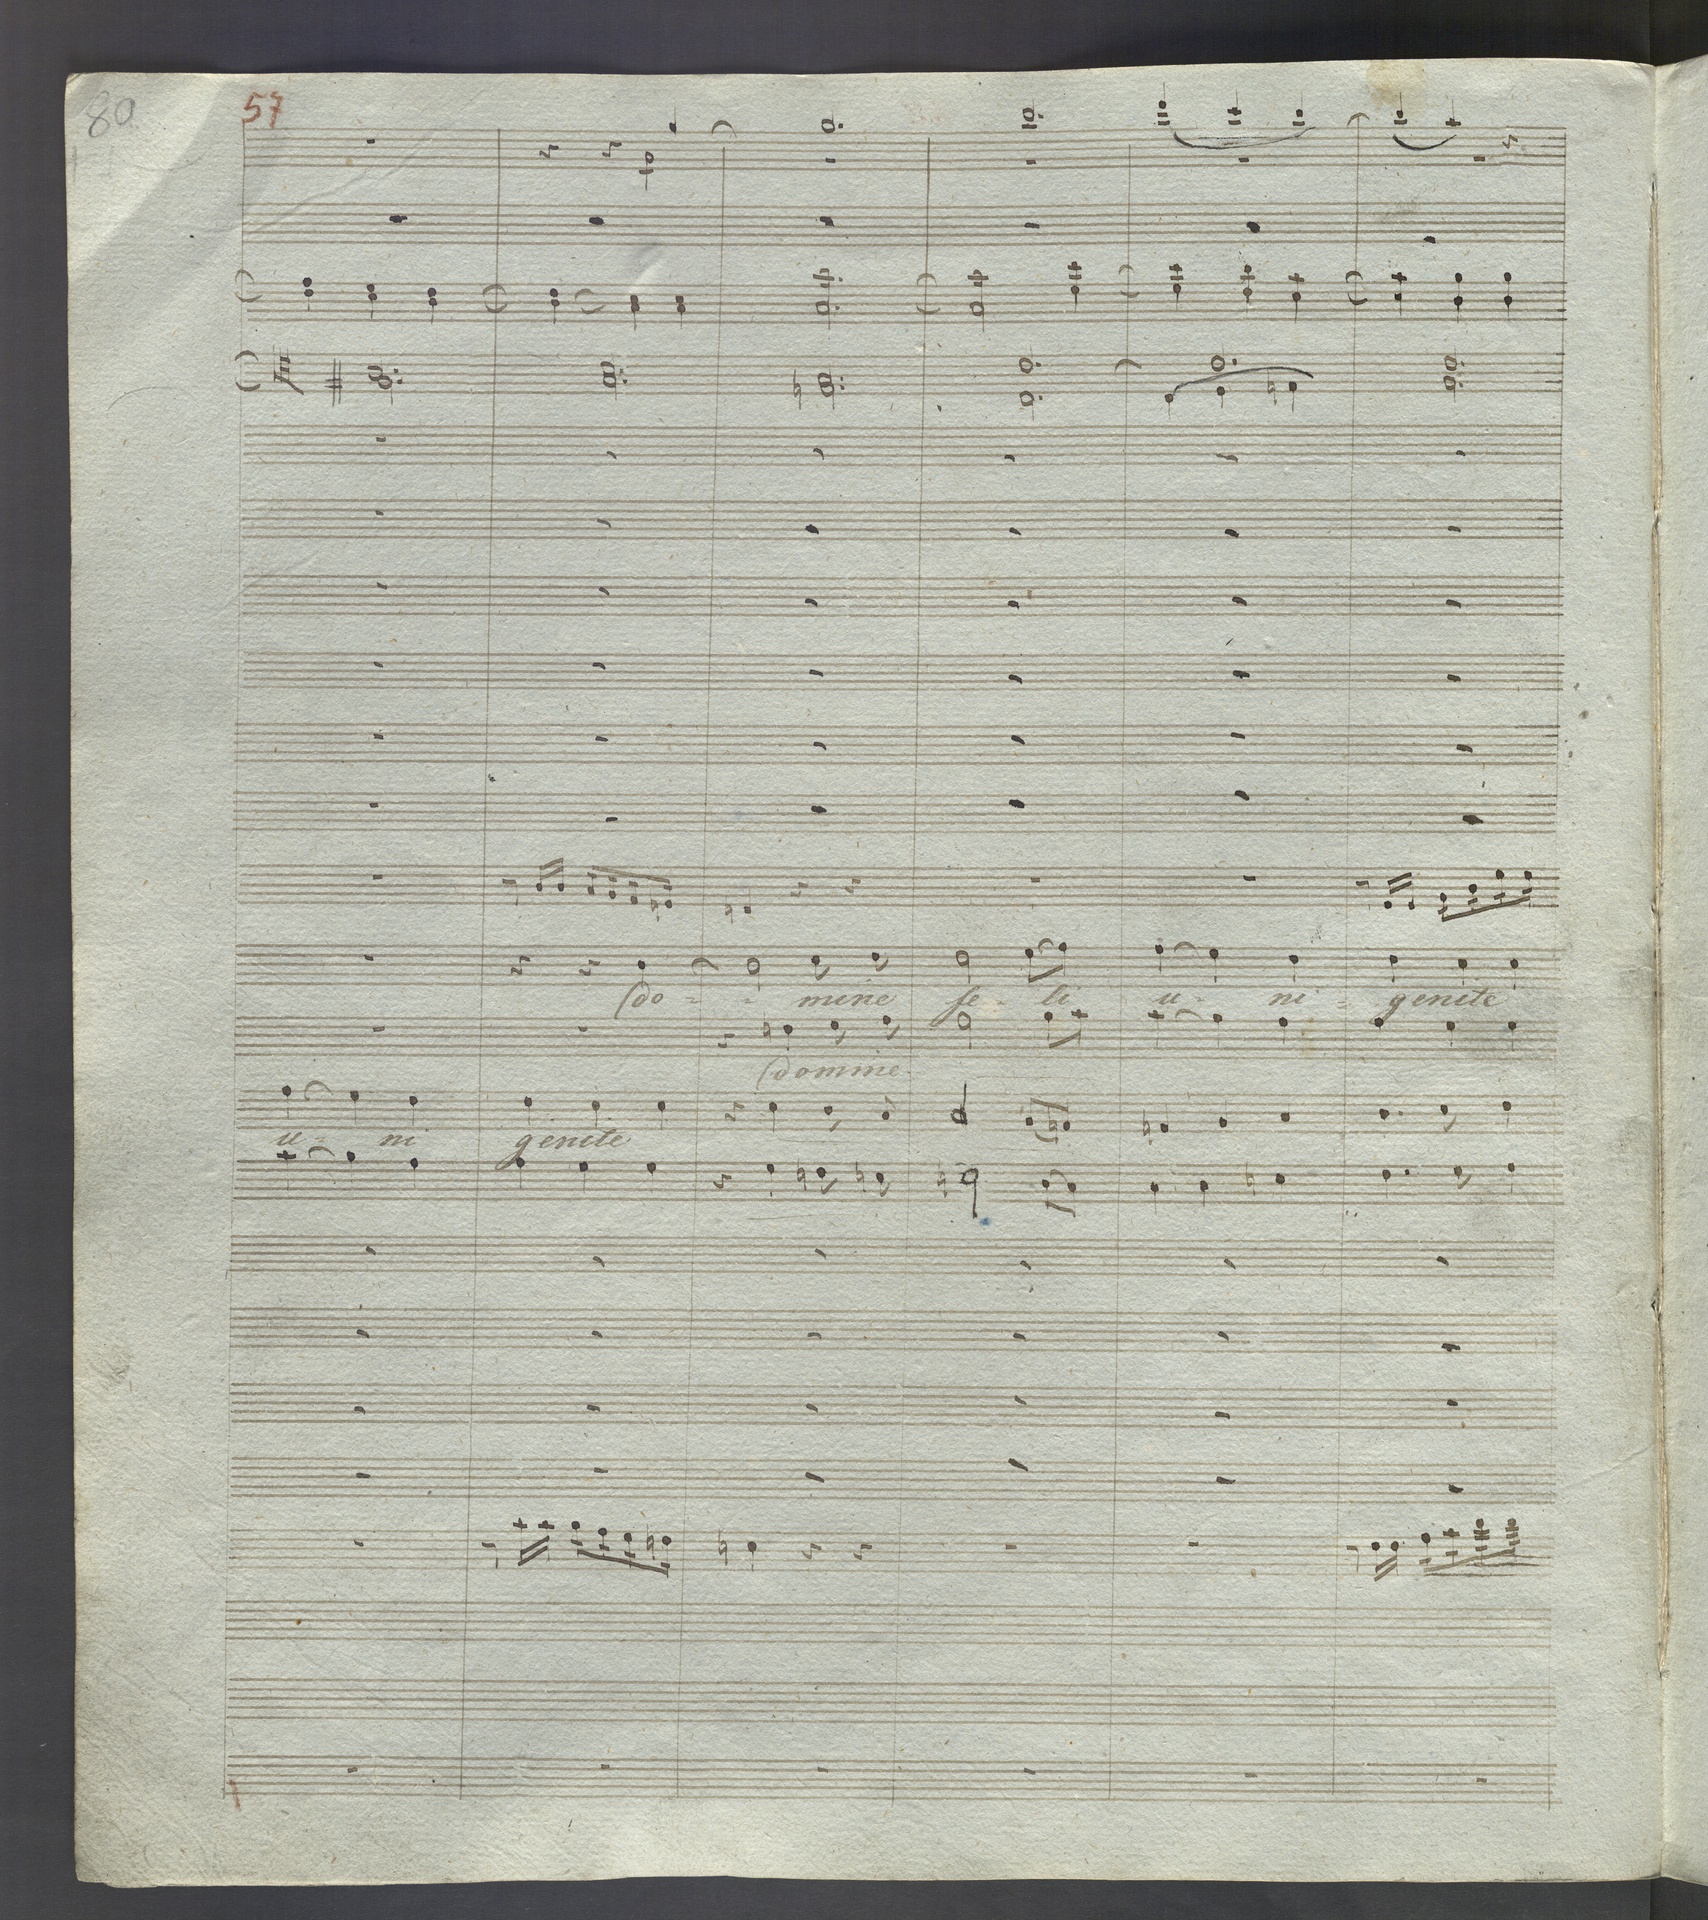 80
57
do - - mine fe - li u - ni - genite
domine
u - ni genite